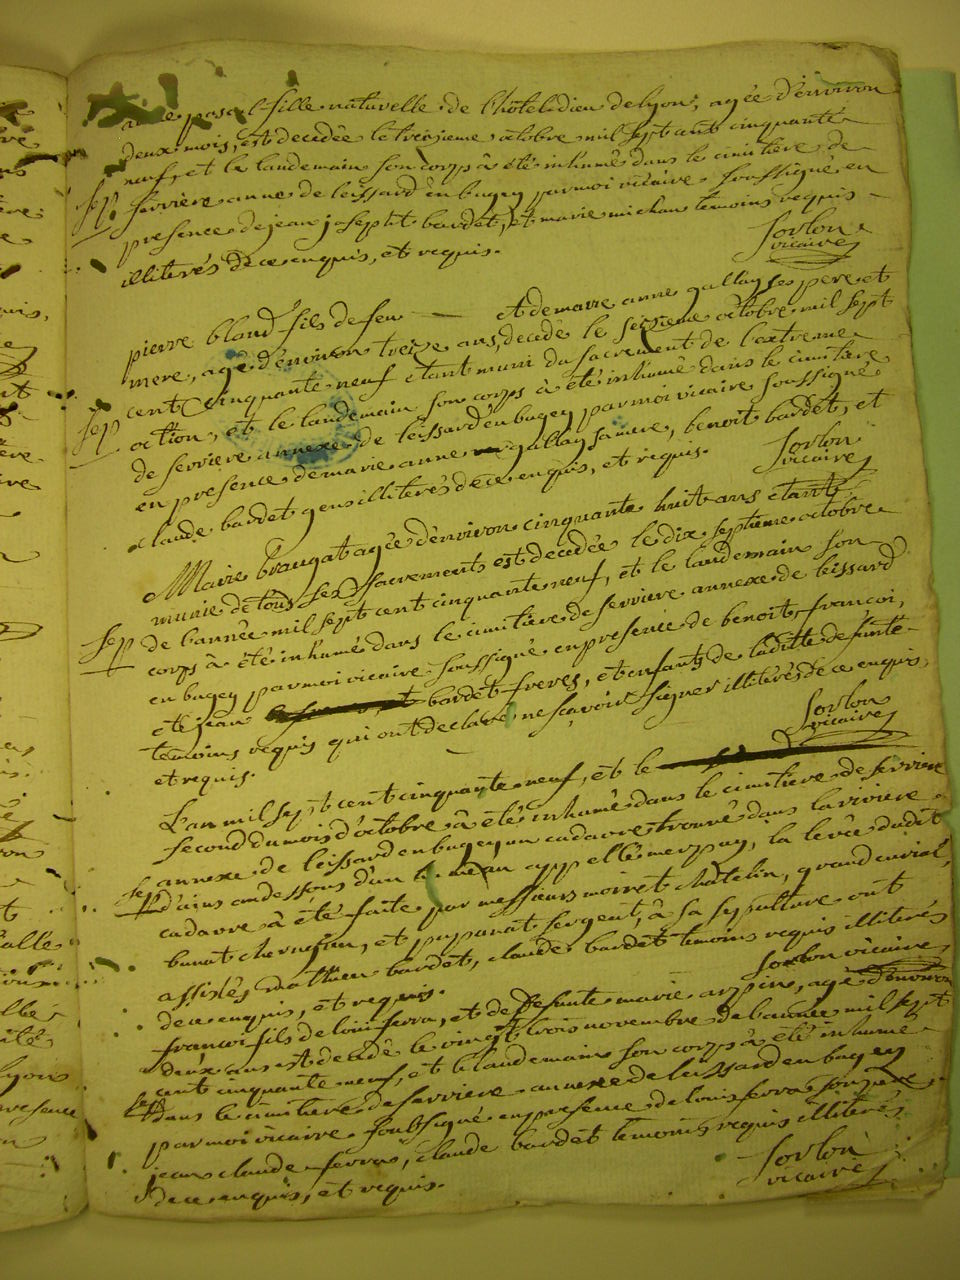 anne pascal fille naturelle de l'hôteldieu de lyon, agée d'environ
deux mois, est decedée le treizieme octobre mil sept cent cinquante
neuf, et le landemain son corp à été inhumé dans le cimitiere de
sep. serriere annexe de leissard en bugey par moi vicaire soussigné en
presence de jean joseph bardet, et marie michau temoins requis
illiterés de ce enquis, et requis.
sorlon
vicaire
pierre bland fils de feu — et de marie anne gallay ses pere et
mere, agé d'environ treize ans, decedé le seizieme octobre mil sept
cent cinquante neuf etant muni du sacrement de l'extreme
sep onction, et le landemain son corps à été inhumé dans le cimitiere
de serriere annexe de leissard en bugey par moi vicaire soussigné
en presence de marie anne gallay sa mere, benoit bardet, et
claude bardet gens illiterés de ce enquis, et requis.
sorlon
vicaire
Marie braugat agée d'environ cinquante huit ans etant
munie de tous ses sacrements est decedée le dix septieme octobre
sep de l'année mil sept cent cinquante neuf, et le landemain son
corps à été inhumé dans le cimitiere de serriere annexe de leissard
en bugey par moi vicaire soussigné en presence de benoit, francoi,
et jean bardet freres, et enfants de laditte defunte
temoins requis qui ont declaré ne sçavoir signer illiterés de ce enquis,
et requis.
sorlon
vicaire
L'an mil sept cent cinquante neuf, et le
second du mois d'octobre à été inhumé dans le cimitiere de serriere
annexe de leissard en bugey un cadavre trouvé dans la riviere
sep d'ains au dessous d'un hameau appellé merpuy, la levée dudit
cadavre à été faite par messieurs moiret châtelin, grand curial,
bunat chirugien, et pupunat sergent, à sa sepulture ont
assistés mathieu bardet, claude bardet temoins requis illiterés
de ce enquis, et requis.
sorlon vicaire
francoi fils de loui ferra, et de defunte marie arpin, agé d'environ
deux ans est decedé le vingt trois novembre de l'année mil sept
sep cent cinquante neuf, et le landemain son corp à été inhumé
dans le cimitiere de serriere annexe de leissard en bugey
par moi vicaire soubsigné en presence de loui ferra son pere
jean claude ferra, claude bardet temoins requis illiterés
de ce enquis, et requis.
sorlon
vicaire